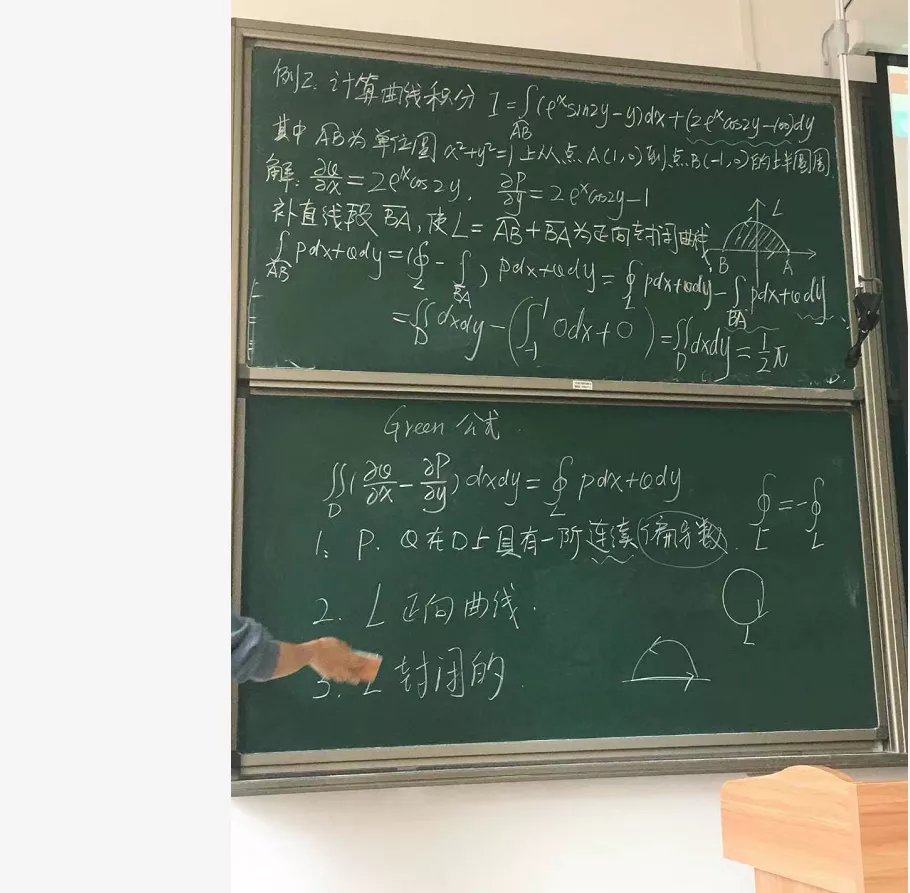 例2. 计算曲线积分 I=∫_{AB}(eˣsin2y-y)dx+(2eˣcos2y-100)dy
其中 AB为单位圆 x²+y²=1 上从点 A(1,0) 到点 B(-1,0) 的上半圆周
解: ∂Q/∂x=2eˣcos2y, ∂P/∂y=2eˣcos2y-1
补直线段 BA, 使L=AB+BA为正向封闭曲线
L
B A
∫_{AB} Pdx+Qdy=(∮_L-∫_{BA}) Pdx+Qdy=∮_L Pdx+Qdy-∫_{BA} Pdx+Qdy
=∬_D dxdy-(∫_{-1}^{1} 0dx+0)=∬_D dxdy=½π
Green 公式.
∬_D(∂Q/∂x-∂P/∂y)dxdy=∮_L Pdx+Qdy
∮_{L⁻}=-∮_L
1. P. Q在D上具有一阶连续偏导数.
2. L 正向曲线.
L
3. L 封闭的.